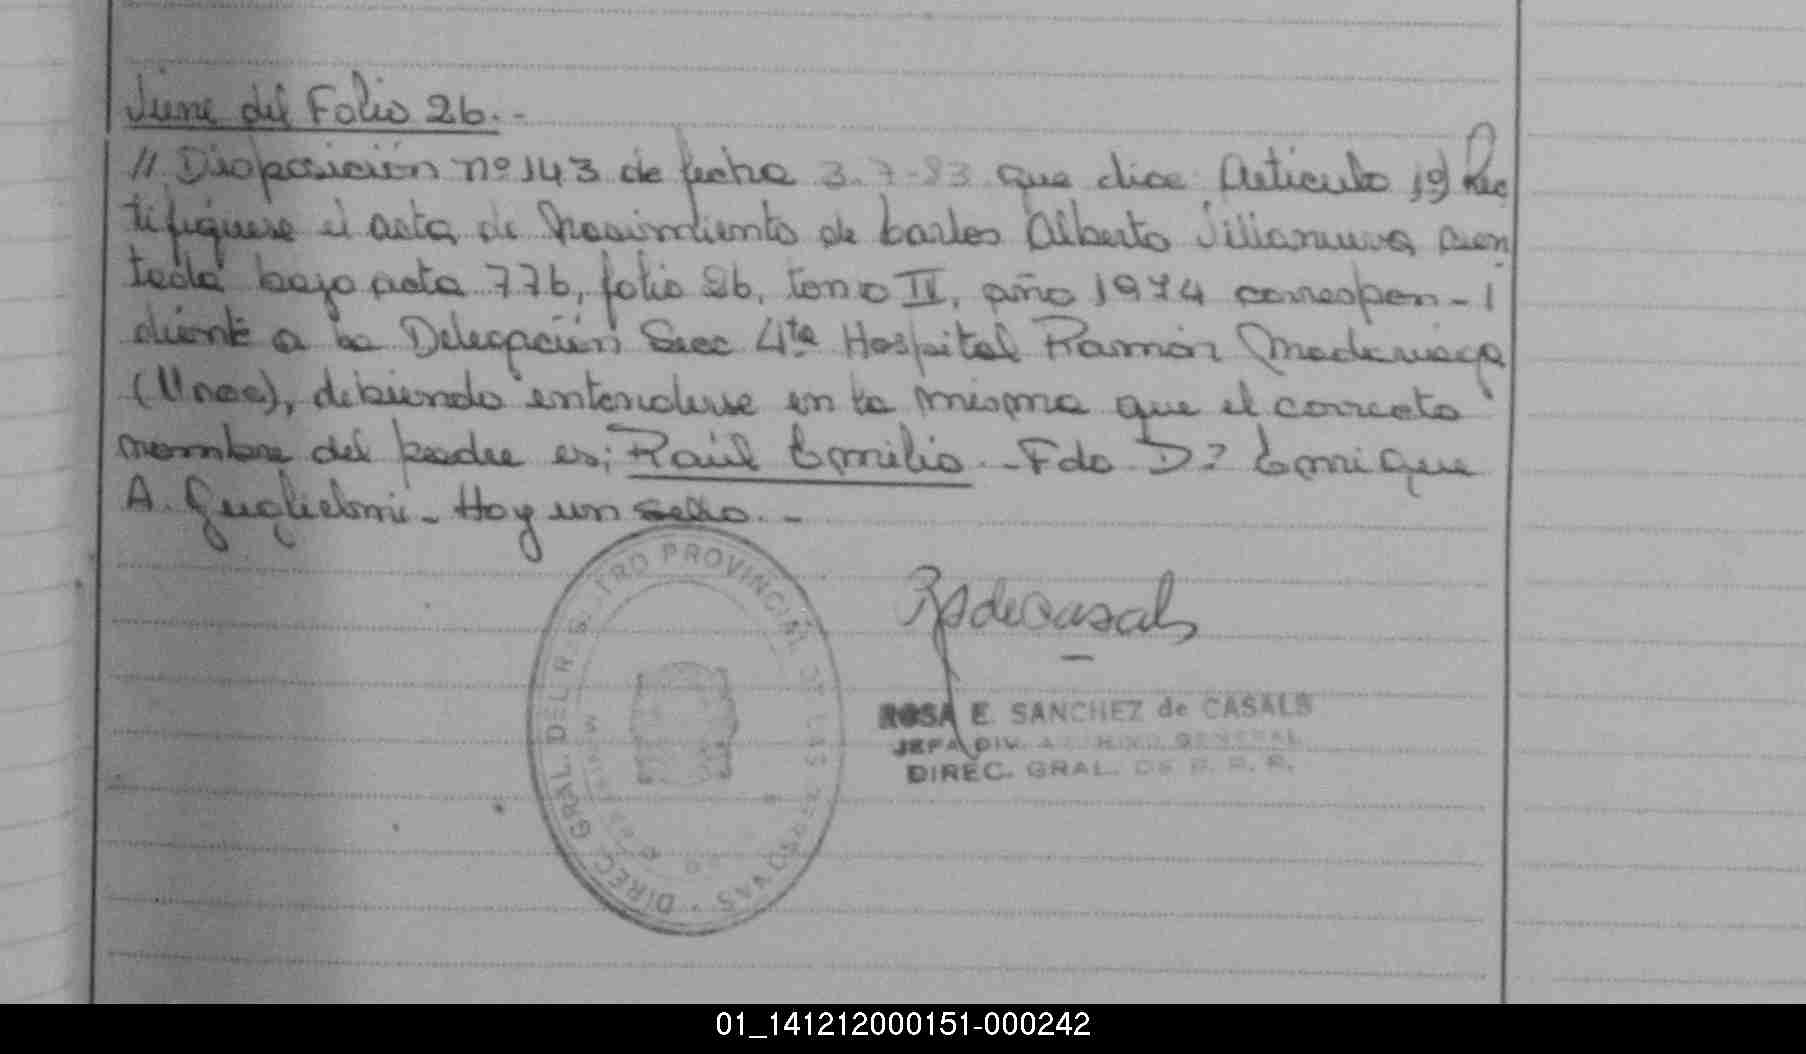 Viene del Folio 26.-
// Disposición nº 143 de fecha 3.7-83 que dice: Articulo 1º) Rec
tifiquese el acta de Nacimiento de Carlos Alberto Villanueva asen
tada bajo acta 776, folio 26, tomo IV, año 1974 correspon-
diente a la Delegación Secc 4ta Hospital Ramón Madariaga
(Unoc), debiendo entenderse en la misma que el correcto
nombre del padre es; Raúl Emilio.-Fdo D: Enrique
A. Guglielmi- Hay un sello.-
DIREC. GRAL. DEL R. PROVINCIAL DE LAS PERSONAS
RSdeCasals
ROSA E. SANCHEZ de CASALS
JEFA DIV. ARCHIVO GENERAL
DIREC. GRAL. DE R. P. P.
01_141212000151-000242